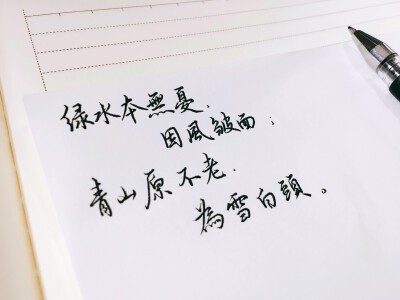 绿水本無憂，
因風皱面；
青山原不老，
為雪白頭。